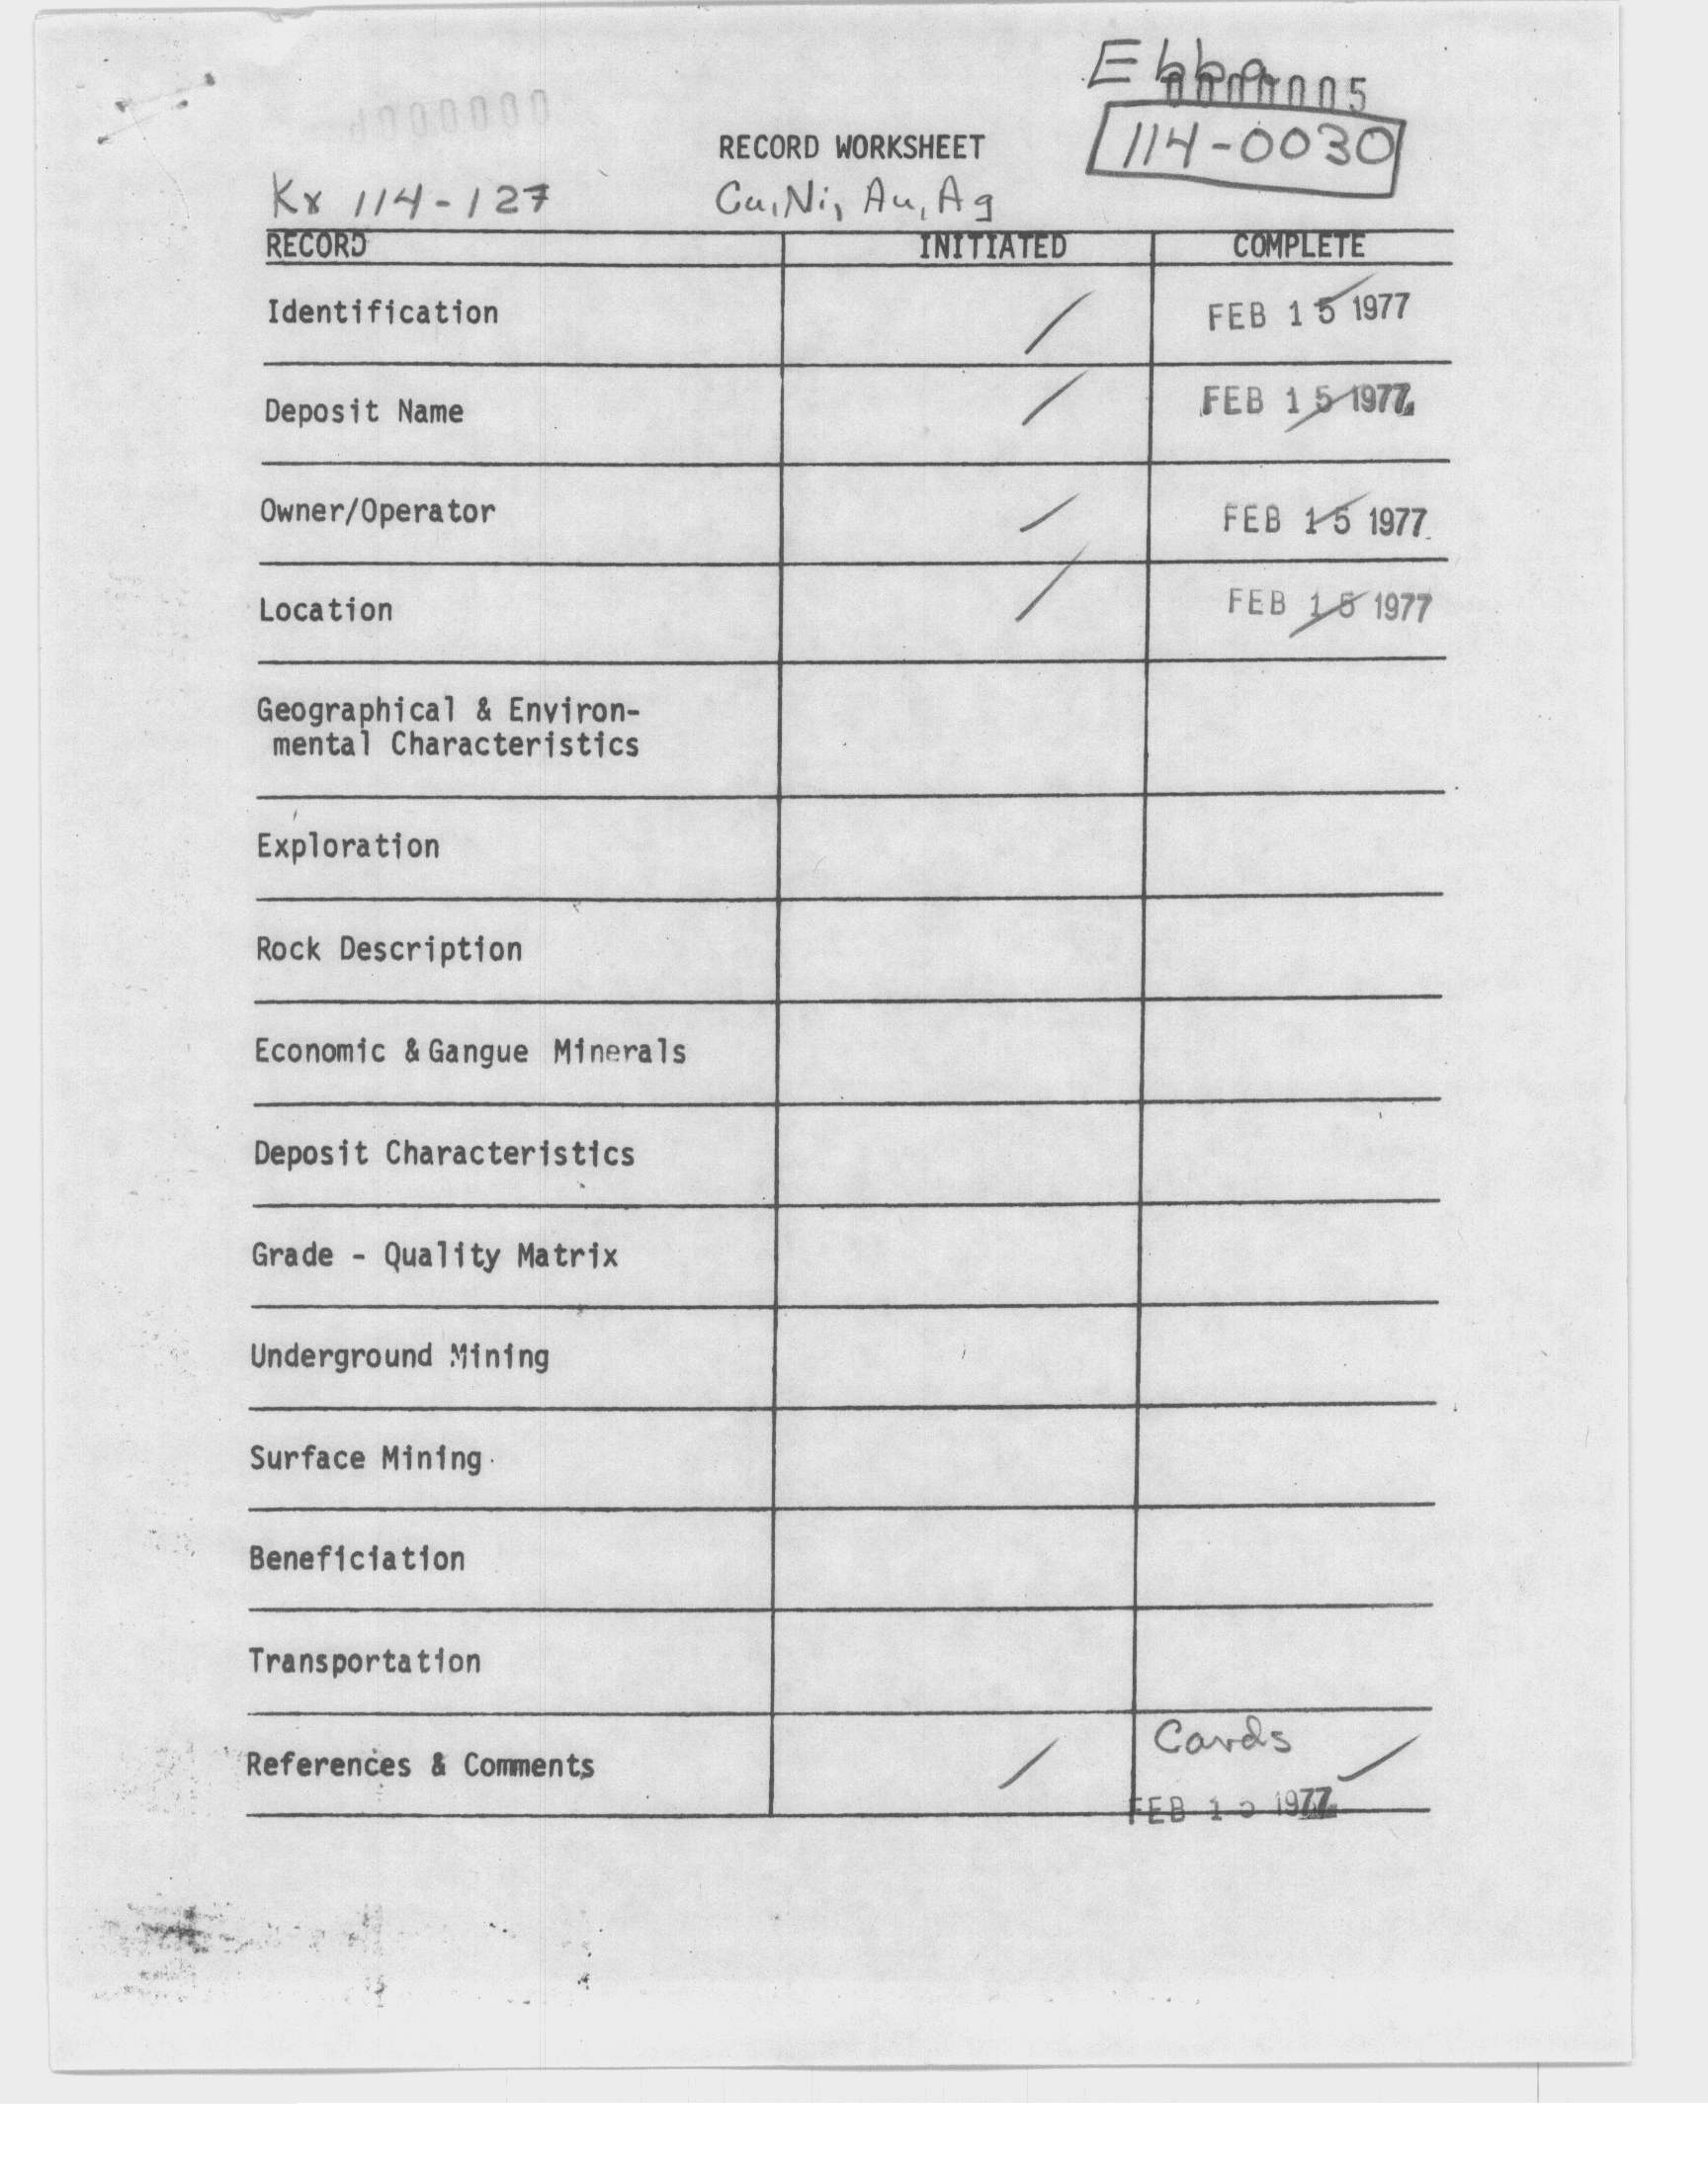 Ebba
0000005
RECORD WORKSHEET
114-0030
Kx 114-127
Cu, Ni, Au, Ag
RECORD INITIATED COMPLETE
Identification / FEB 15 1977
Deposit Name / FEB 15 1977
Owner/Operator / FEB 15 1977
Location / FEB 15 1977
Geographical & Environ-
mental Characteristics
Exploration
Rock Description
Economic & Gangue Minerals
Deposit Characteristics
Grade - Quality Matrix
Underground Mining
Surface Mining
Beneficiation
Transportation
Cards
References & Comments /
FEB 15 1977